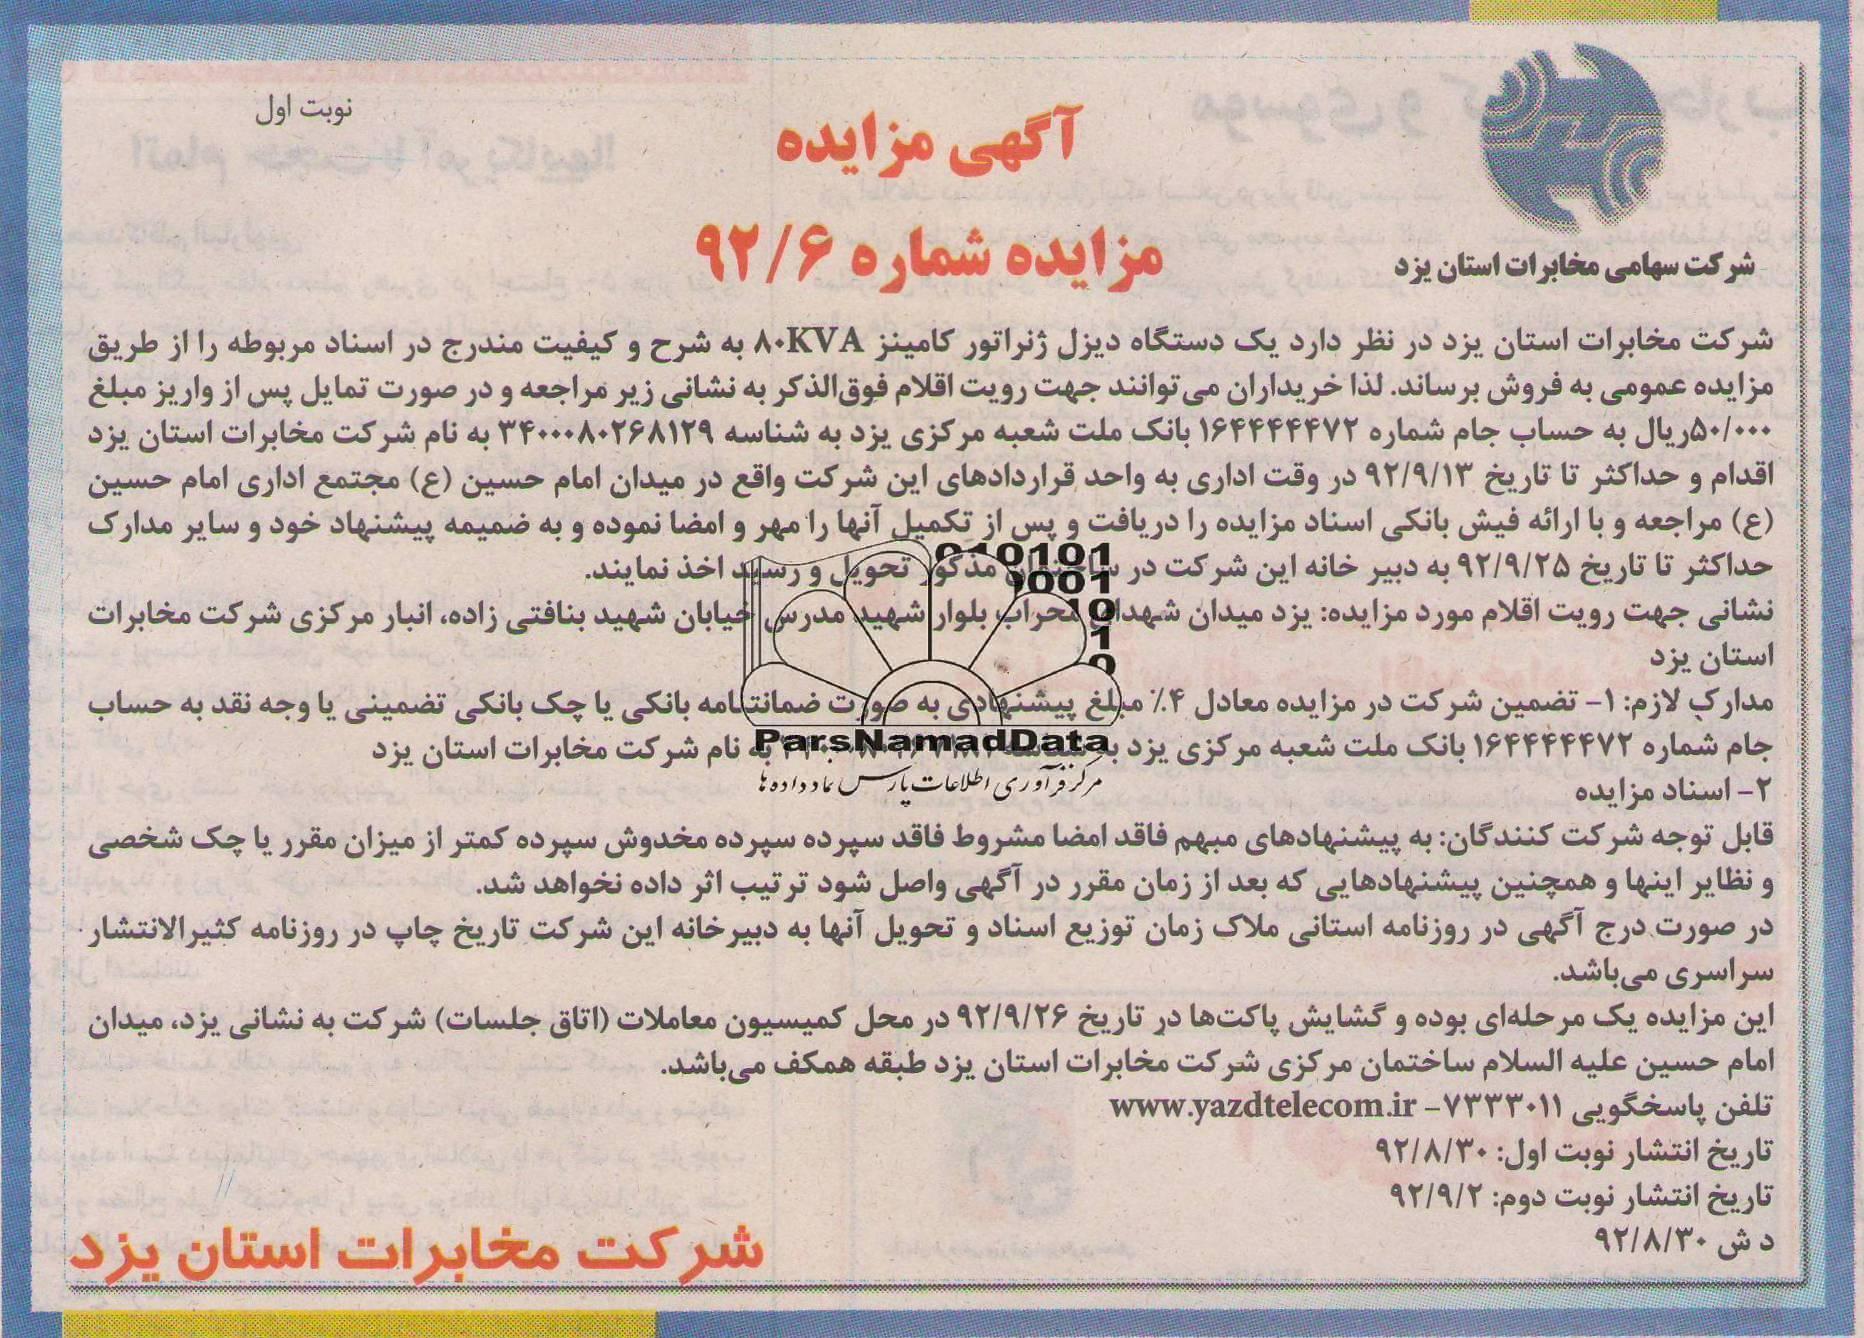 نوبت اول
آگهی مزایده
مزایده شماره ۹۲/۶
شرکت سهامی مخابرات استان یزد
شرکت مخابرات استان یزد در نظر دارد یک دستگاه دیزل ژنراتور کامینز ۸۰KVA به شرح و کیفیت مندرج در اسناد مربوطه را از طریق
مزایده عمومی به فروش برساند. لذا خریداران می‌توانند جهت رویت اقلام فوق‌الذکر به نشانی زیر مراجعه و در صورت تمایل پس از واریز مبلغ
۵۰/۰۰۰ریال به حساب جام شماره ۱۶۴۴۴۴۴۷۲ بانک ملت شعبه مرکزی یزد به شناسه ۳۴۰۰۰۸۰۲۶۸۱۲۹ به نام شرکت مخابرات استان یزد
اقدام و حداکثر تا تاریخ ۹۲/۹/۱۳ در وقت اداری به واحد قراردادهای این شرکت واقع در میدان امام حسین (ع) مجتمع اداری امام حسین
(ع) مراجعه و با ارائه فیش بانکی اسناد مزایده را دریافت و پس از تکمیل آنها را مهر و امضا نموده و به ضمیمه پیشنهاد خود و سایر مدارک
حداکثر تا تاریخ ۹۲/۹/۲۵ به دبیر خانه این شرکت در ساختمان مذکور تحویل و رسید اخذ نمایند.
نشانی جهت رویت اقلام مورد مزایده: یزد میدان شهدای محراب بلوار شهید مدرس خیابان شهید بنافتی زاده، انبار مرکزی شرکت مخابرات
استان یزد
مدارک لازم: ۱- تضمین شرکت در مزایده معادل ۴٪ مبلغ پیشنهادی به صورت ضمانتنامه بانکی یا چک بانکی تضمینی یا وجه نقد به حساب
جام شماره ۱۶۴۴۴۴۴۷۲ بانک ملت شعبه مرکزی یزد به نام شرکت مخابرات استان یزد
ParsNamadData
مرکز فرآوری اطلاعات پارس نماد داده ها
۲- اسناد مزایده
قابل توجه شرکت کنندگان: به پیشنهادهای مبهم فاقد امضا مشروط فاقد سپرده سپرده مخدوش سپرده کمتر از میزان مقرر یا چک شخصی
و نظایر اینها و همچنین پیشنهادهایی که بعد از زمان مقرر در آگهی واصل شود ترتیب اثر داده نخواهد شد.
در صورت درج آگهی در روزنامه استانی ملاک زمان توزیع اسناد و تحویل آنها به دبیرخانه این شرکت تاریخ چاپ در روزنامه کثیرالانتشار
سراسری می‌باشد.
این مزایده یک مرحله‌ای بوده و گشایش پاکت‌ها در تاریخ ۹۲/۹/۲۶ در محل کمیسیون معاملات (اتاق جلسات) شرکت به نشانی یزد، میدان
امام حسین علیه السلام ساختمان مرکزی شرکت مخابرات استان یزد طبقه همکف می‌باشد.
تلفن پاسخگویی ۷۳۳۳۰۱۱- www.yazdtelecom.ir
تاریخ انتشار نوبت اول: ۹۲/۸/۳۰
تاریخ انتشار نوبت دوم: ۹۲/۹/۲
د ش ۹۲/۸/۳۰
شرکت مخابرات استان یزد